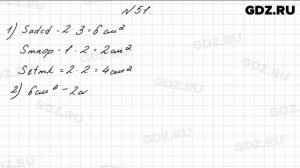 GDZ.RU
№ 51
1) Sabcd - 2 · 3 = 6 см²
Smnop - 1 · 2 = 2 см²
Setmk = 2 · 2 = 4 см²
2) 6 см² - 2 с